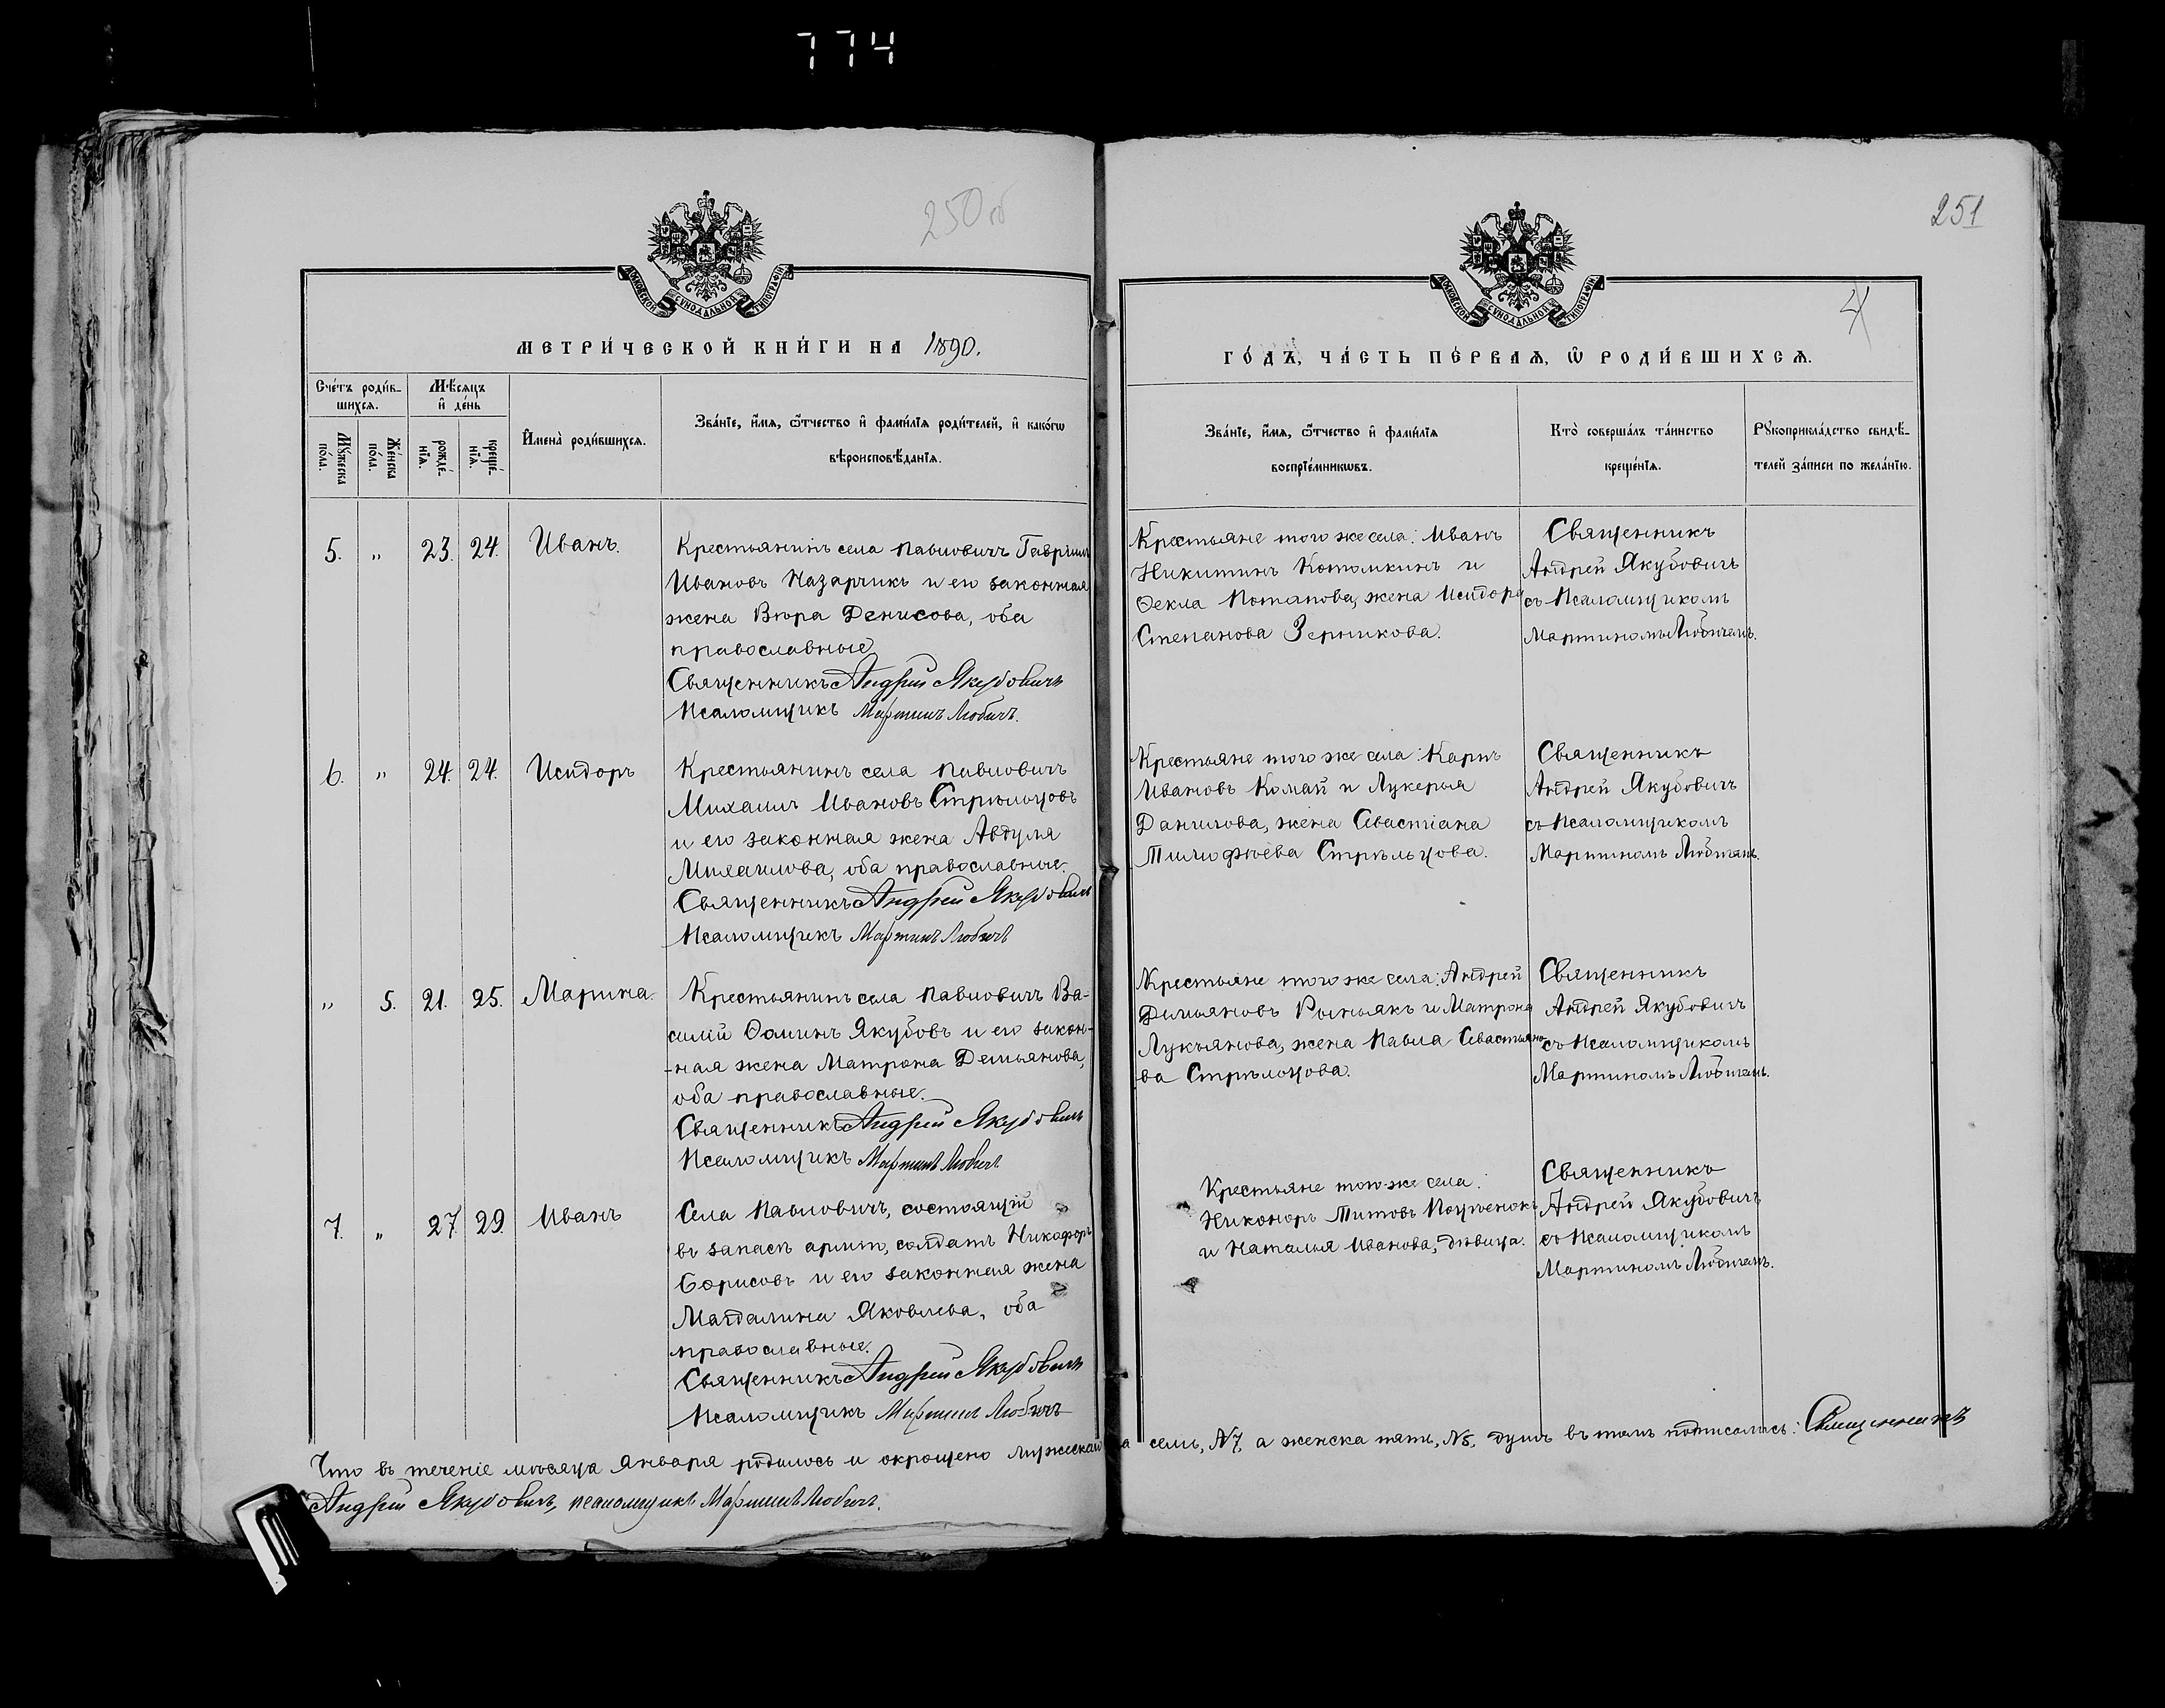 774
250 об
251
4
МОСКОВСКОЙ СѴНОДАЛЬНОЙ ТИПОГРАФІИ
МОСКОВСКОЙ СѴНОДАЛЬНОЙ ТИПОГРАФІИ
МЕТРИ́ЧЕСКОЙ КНИ́ГИ НА 1890.
ГО́ДЪ, ЧА́СТЬ ПЕ́РВАЯ, Ѽ РОДИ́ВШИХСЯ.
Сче́тъ роди́в-
шихся.
Мꙋ́жеска
по́ла.
Же́нска
по́ла.
Мѣ́сяцъ
и҆ де́нь
рожде́-
нїя.
креще́-
нїя.
И҆мена̀ роди́вшихся.
Зва́нїе, и҆́мя, ѻ҆́тчество и҆ фами́лїя роди́телей, и҆ како́гѡ
вѣроисповѣ́данїя.
Зва́нїе, и҆́мя, ѻ҆́тчество и҆ фами́лїя
воспрїе́мникѡвъ.
Кто̀ соверша́лъ та́инство
креще́нїя.
Рꙋкоприкла́дство свидѣ́-
телей за́писи по жела́нїю.
5. „ 23. 24. Иванъ.
Крестьянинъ села Павловичъ Гавріилъ
Ивановъ Назарчикъ и его законная
жена Вѣра Денисова, оба
православные
Священникъ Андрей Якубовичъ
Псаломщикъ Мартинъ Любичъ.
Крестьяне того же села: Иванъ
Никитинъ Котомкинъ и
Ѳекла Потапова, жена Исидора
Степанова Зерникова.
Священникъ
Андрей Якубовичъ
съ Псаломщикомъ
Мартиномъ Любичемъ.
6. „ 24. 24. Исидоръ
Крестьянинъ села Павловичъ
Михаилъ Ивановъ Стрѣльцовъ
и его законная жена Авдуля
Михаилова, оба православные.
Священникъ Андрей Якубовичъ
Псаломщикъ Мартинъ Любичъ
Крестьяне того же села: Карпъ
Ивановъ Комай и Лукерья
Данилова, жена Севастіана
Тимофѣева Стрѣльцова.
Священникъ
Андрей Якубовичъ
съ Псаломщикомъ
Мартиномъ Любичемъ.
„ 5. 21. 25. Марина.
Крестьянинъ села Павловичъ Ва-
силій Ѳоминъ Якубовъ и его закон-
-ная жена Матрона Демьянова,
оба православные.
Священникъ Андрей Якубовичъ
Псаломщикъ Мартинъ Любичъ
Крестьяне того же села: Андрей
Демьяновъ и Матрона
Лукьянова, жена Павла Севастьяно-
ва Стрѣльцова.
Священникъ
Андрей Якубовичъ
съ Псаломщикомъ
Мартиномъ Любичемъ.
7. „ 27. 29. Иванъ
Села Павловичъ, состоящій
въ запасѣ арміи, солдатъ Никафоръ
Борисовъ и его законная жена
Магдалина Яковлева, оба
православные.
Священникъ Андрей Якубовичъ
Псаломщикъ Мартинъ Любичъ
Крестьяне того-же села:
Никоноръ Титовъ
и Наталья Иванова, дѣвица.
Священникъ
Андрей Якубовичъ
съ Псаломщикомъ
Мартиномъ Любичемъ.
Что въ теченіе мѣсяца Января родилось и окрещено мужеска пола семь, №7, а женска пять, №5, душъ въ томъ подписались: Священникъ
Андрей Якубовичъ, псаломщикъ Мартинъ Любичъ.